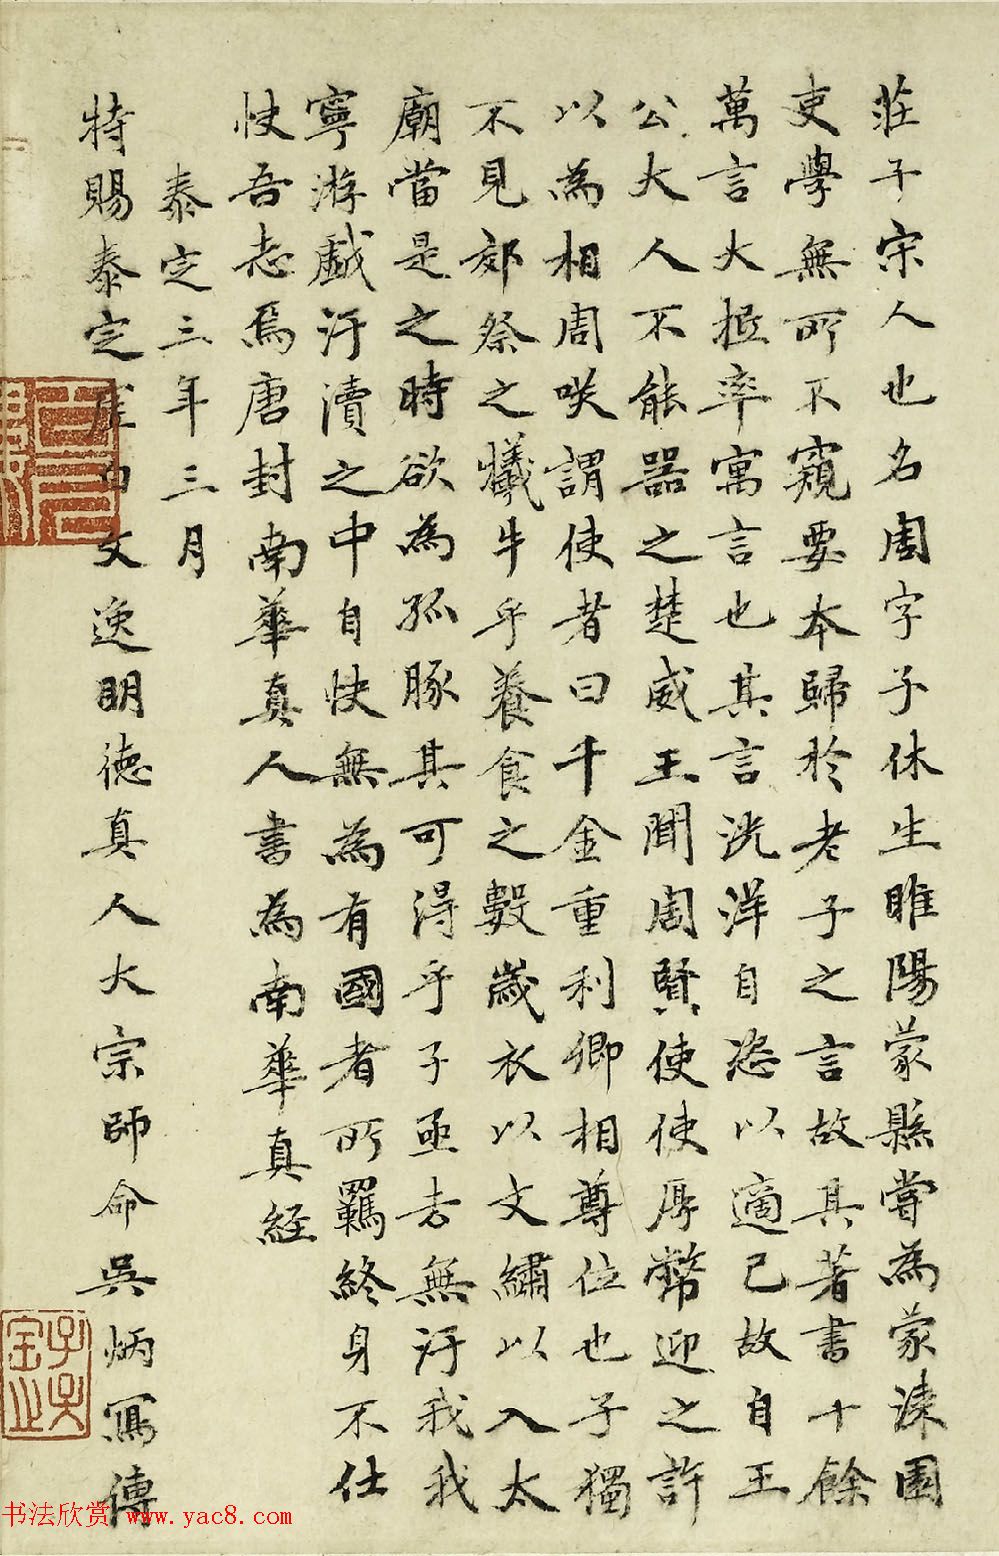 莊子宋人也名周字子休生睢陽蒙縣嘗為蒙漆園
吏學無所不窺要本歸於老子之言故其著書十餘
萬言大抵率寓言也其言洸洋自恣以適己故自王
公大人不能器之楚威王聞周賢使使厚幣迎之許
以為相周咲謂使者曰千金重利卿相尊位也子獨
不見郊祭之犧牛乎養食之數歲衣以文繡以入太
廟當是之時欲為孤豚其可得乎子亟去無汙我我
寧游戲汙瀆之中自快無為有國者所羈終身不仕
快吾志焉唐封南華真人書為南華真経
泰定三年三月
特賜泰定虗白文逸明德真人大宗師命吳炳寫傳
书法欣赏 www.yac8.com